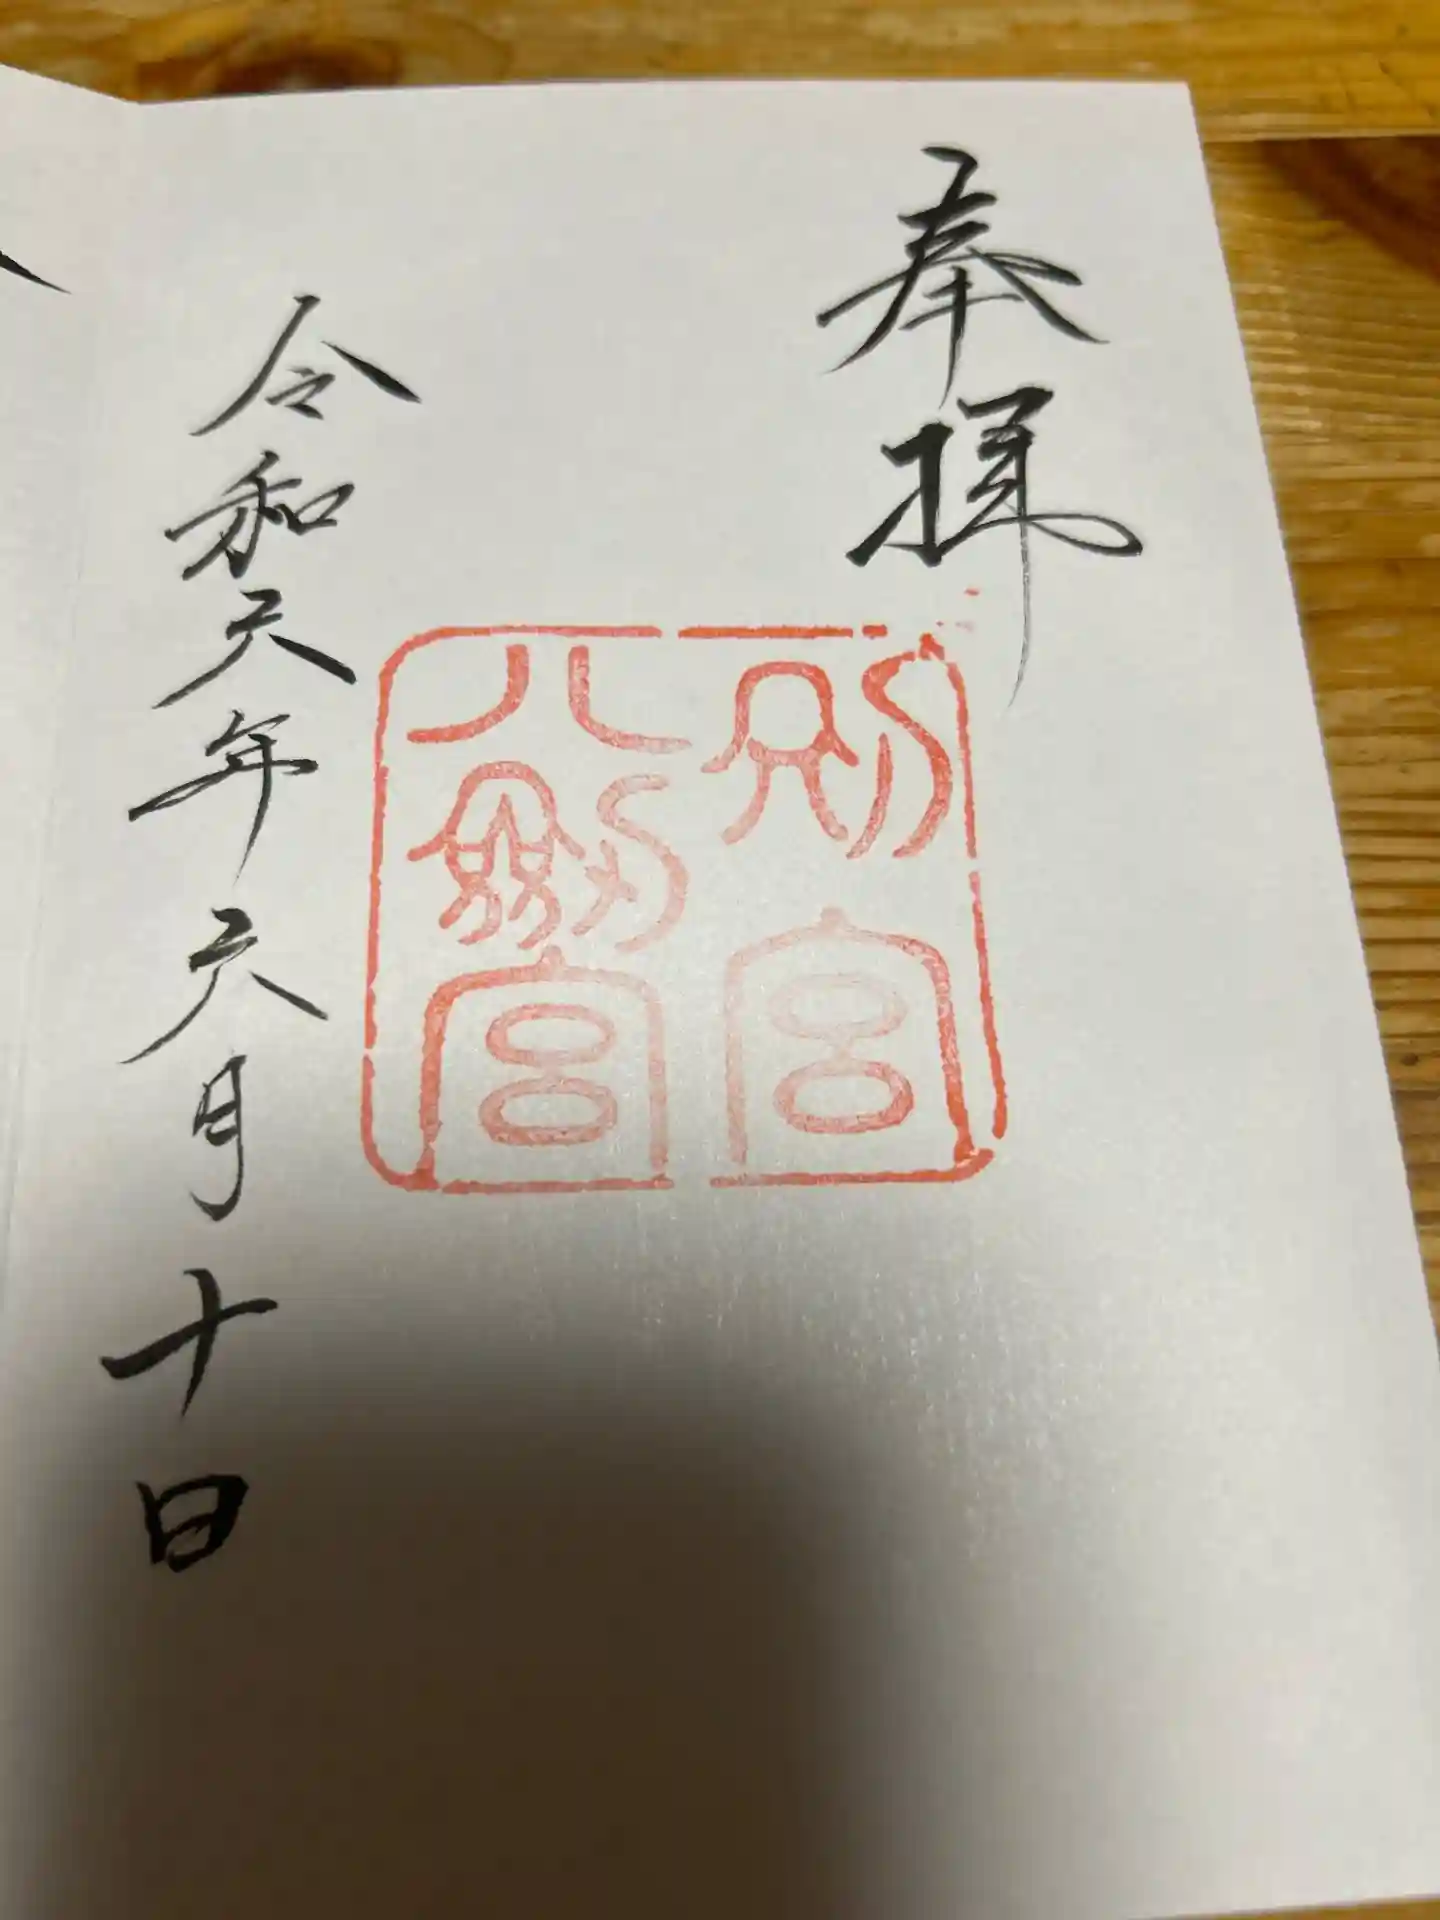 奉拝
別宮
八劔宮
令和六年六月十日